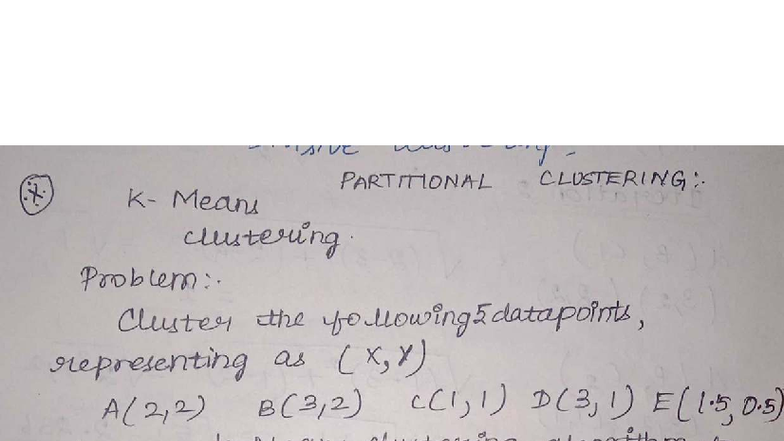 PARTITIONAL CLUSTERING:-
(*) K-Means
clustering.
Problem:-
Cluster the following 5 datapoints,
representing as (X,Y)
A(2,2) B(3,2) C(1,1) D(3,1) E(1.5, 0.5)